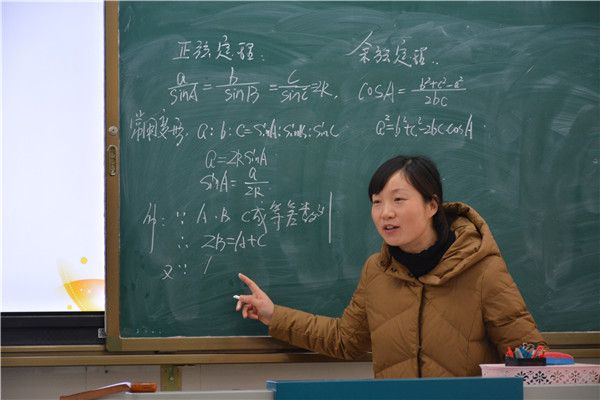 正弦定理:
余弦定理:
a/sinA = b/sinB = c/sinC = 2R.
cosA = (b²+c²-a²)/2bc
常用变形. a:b:c=sinA:sinB:sinC
a²=b²+c²-2bc cosA
a=2RsinA
sinA = a/2R
∵ A.B C成等差数列
∴ 2B=A+C
又∵